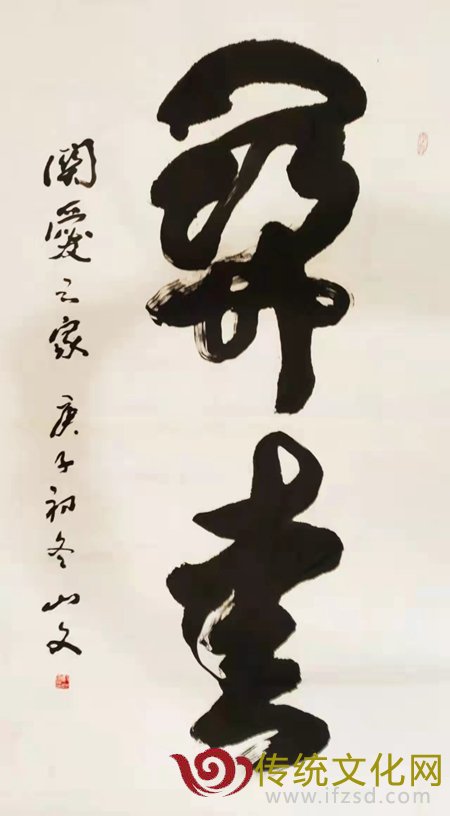 關愛
關愛之家 庚子初冬 山文
传统文化网
www.ifzsd.com